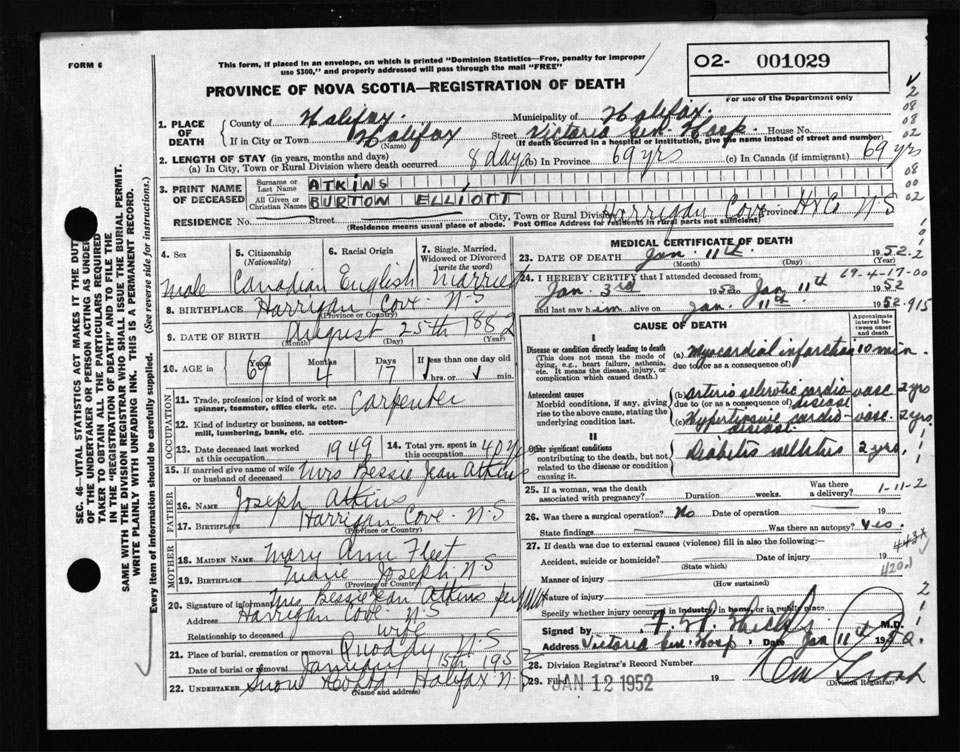 FORM 6
This form, if placed in an envelope, on which is printed "Dominion Statistics—Free, penalty for improper
use $300," and properly addressed will pass through the mail "FREE"
02- 001029
For use of the Department only
PROVINCE OF NOVA SCOTIA—REGISTRATION OF DEATH
SEC. 46—VITAL STATISTICS ACT MAKES IT THE DUTY
OF THE UNDERTAKER OR PERSON ACTING AS UNDER-
TAKER TO OBTAIN ALL THE PARTICULARS REQUIRED
IN THE "REGISTRATION OF DEATH" AND TO FILE THE
SAME WITH THE DIVISION REGISTRAR WHO SHALL ISSUE THE BURIAL PERMIT.
WRITE PLAINLY WITH UNFADING INK. THIS IS A PERMANENT RECORD.
Every item of information should be carefully supplied. (See reverse side for instructions.)
1. PLACE OF DEATH
County of Halifax. Municipality of Halifax.
If in City or Town Halifax (Name) Street Victoria Gen. Hosp. House No.
(If death occurred in a hospital or institution, give the name instead of street and number)
2. LENGTH OF STAY (in years, months and days)
(a) In City, Town or Rural Division where death occurred 8 days (b) In Province 69 yrs (c) In Canada (if immigrant) 69 yrs
3. PRINT NAME OF DECEASED
Surname or Last Name ATKINS
All Given or Christian Names BURTON ELLIOTT
RESIDENCE No. Street City, Town or Rural Division Harrigan Cove Province Hx Co N.S
(Residence means usual place of abode. Post Office Address for residents in rural parts not sufficient)
4. Sex
male
5. Citizenship (Nationality)
Canadian
6. Racial Origin
English
7. Single, Married, Widowed or Divorced (write the word)
Married
8. BIRTHPLACE Harrigan Cove N.S
(Province or Country)
9. DATE OF BIRTH August 25th 1882
(Month) (Day) (Year)
10. AGE is Years 69 Months 4 Days 17 If less than one day old hrs. or min.
OCCUPATION
11. Trade, profession, or kind of work as spinner, teamster, office clerk, etc. Carpenter
12. Kind of industry or business, as cotton-mill, lumbering, bank, etc.
13. Date deceased last worked at this occupation 1949
14. Total yrs. spent in this occupation 40 yrs
15. If married give name of wife or husband of deceased Mrs Bessie Jean Atkins
FATHER
16. NAME Joseph Atkins
17. BIRTHPLACE Harrigan Cove N.S
(Province or Country)
MOTHER
18. MAIDEN NAME Mary Ann Fleet
19. BIRTHPLACE Marie Joseph N.S
(Province or Country)
20. Signature of informant Mrs Bessie Jean Atkins per
Address Harrigan Cove N.S
Relationship to deceased wife
21. Place of burial, cremation or removal Quoddy N.S
Date of burial or removal January 15th 1952
22. UNDERTAKER Snow Halifax N.S
(Name and address)
MEDICAL CERTIFICATE OF DEATH
23. DATE OF DEATH Jan 11th 1952
(Month) (Day) (Year)
69-4-17-00
24. I HEREBY CERTIFY that I attended deceased from:
Jan. 3rd 1952 to Jan 11th 1952
and last saw him alive on Jan. 11th 1952-915
CAUSE OF DEATH
Approximate interval between onset and death
I
Disease or condition directly leading to death
(This does not mean the mode of dying, e.g., heart failure, asthenia, etc. It means the disease, injury, or complication which caused death.)
(a) Myocardial infarction 10 min.
due to (or as a consequence of)
Antecedent causes
Morbid conditions, if any, giving rise to the above cause, stating the underlying condition last.
(b) Arterio sclerotic cardio-vasc disease 2 yrs
due to (or as a consequence of)
(c) Hypertensive cardio-vasc. disease. 2 yrs.
II
Other significant conditions
contributing to the death, but not related to the disease or condition causing it.
Diabetis mellitus 2 yrs.
1-11-2
25. If a woman, was the death associated with pregnancy? Duration weeks. Was there a delivery?
26. Was there a surgical operation? No Date of operation 19
State findings Was there an autopsy? Yes.
27. If death was due to external causes (violence) fill in also the following:—
Accident, suicide or homicide? Date of injury 19
(State which)
Manner of injury
(How sustained)
Nature of injury
Specify whether injury occurred in industry, in home, or in public place
Signed by M.D.
Address Victoria Gen. Hosp Date Jan 11th 1952.
28. Division Registrar's Record Number
29. Filed JAN 12 1952 19
(Division Registrar)